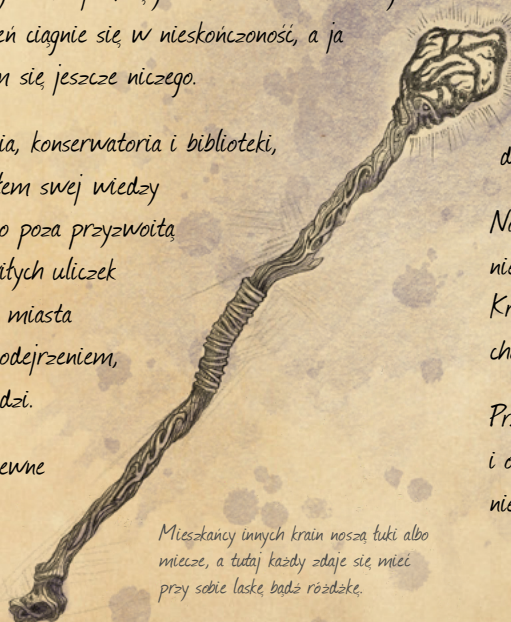 eń ciągnie się w nieskończoność, a ja
m się jeszcze niczego.
ia, konserwatoria i biblioteki,
łem swej wiedzy
o poza przyzwoitą
iłych uliczek
miasta
odejrzeniem,
dzi.
ewne
Mieszkańcy innych krain noszą łuki albo
miecze, a tutaj każdy zdaje się mieć
przy sobie laskę bądź różdżkę.
d
No
nie
Kr
ch
Pr
i o
nie